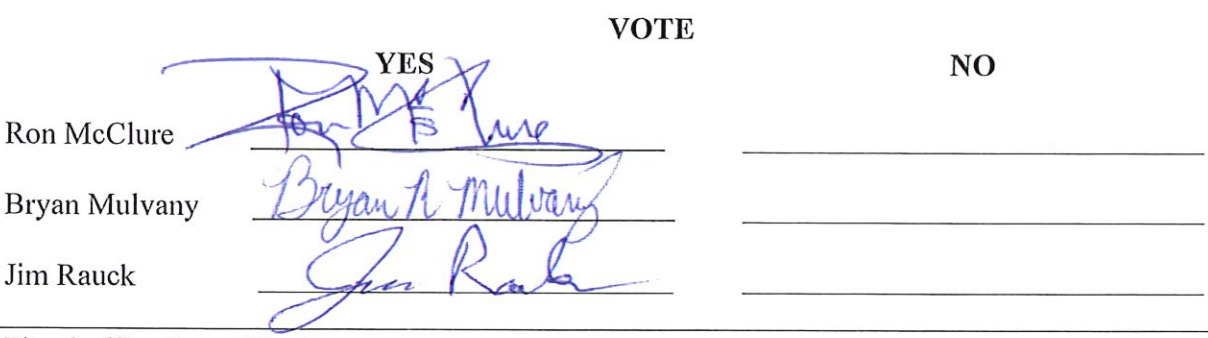 VOTE
YES NO
Ron McClure Ron McClure
Bryan Mulvany Bryan R Mulvany
Jim Rauck Jim Rauck